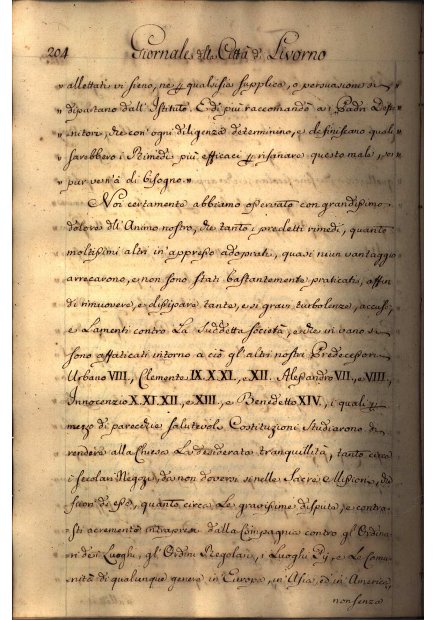 204 Giornale della Città di Livorno
„ allettati vi sieno, ne p qualsisia supplica, o persuasione si
„ dipartano dall'Istituto. E di più raccomandò a i Padri Defi-
„ nitori, che con ogni diligenza determinino, e definiscano quali
„ sarebbero i Rimedi più efficaci p risanare questo male, se
„ pur ven'à di bisogno „
Noi certamente abbiamo osservato con grandissimo
dolore dell'Animo nostro, che tanto i predetti rimedi, quanto
moltissimi altri in appresso adoprati, quasi niun vantaggio
arrecarono, e non sono stati bastantemente praticati, affin
di rimuovere, e dissipare tante, e si gravi turbolenze, accuse,
e Lamenti contro La Suddetta Società, e che in vano si
sono affaticati intorno a ciò gl'altri nostri Predecessori
Urbano VIII, Clemente IX. X. XI., e XII. Alessandro VII., e VIII,
Innocenzo X. XI. XII., e XIII., e Benedetto XIV., i quali p
mezo di parecchie salutevoli Costituzioni Studiarono di
rendere alla Chiesa La desiderata tranquillità, tanto circa
i secolari Negozi, da non doversi si nelle Sacre Missioni, che
fuori di esse, quanto circa Le gravissime dispute, e contra-
sti acremente intrapresi dalla Compagnia contro gl'Ordina-
ri dei Luoghi, gl'Ordini Regolari, i Luoghi Pij, e Le Comu-
nità di qualunque genere in Europa, in Asia, ed in America,
non senza